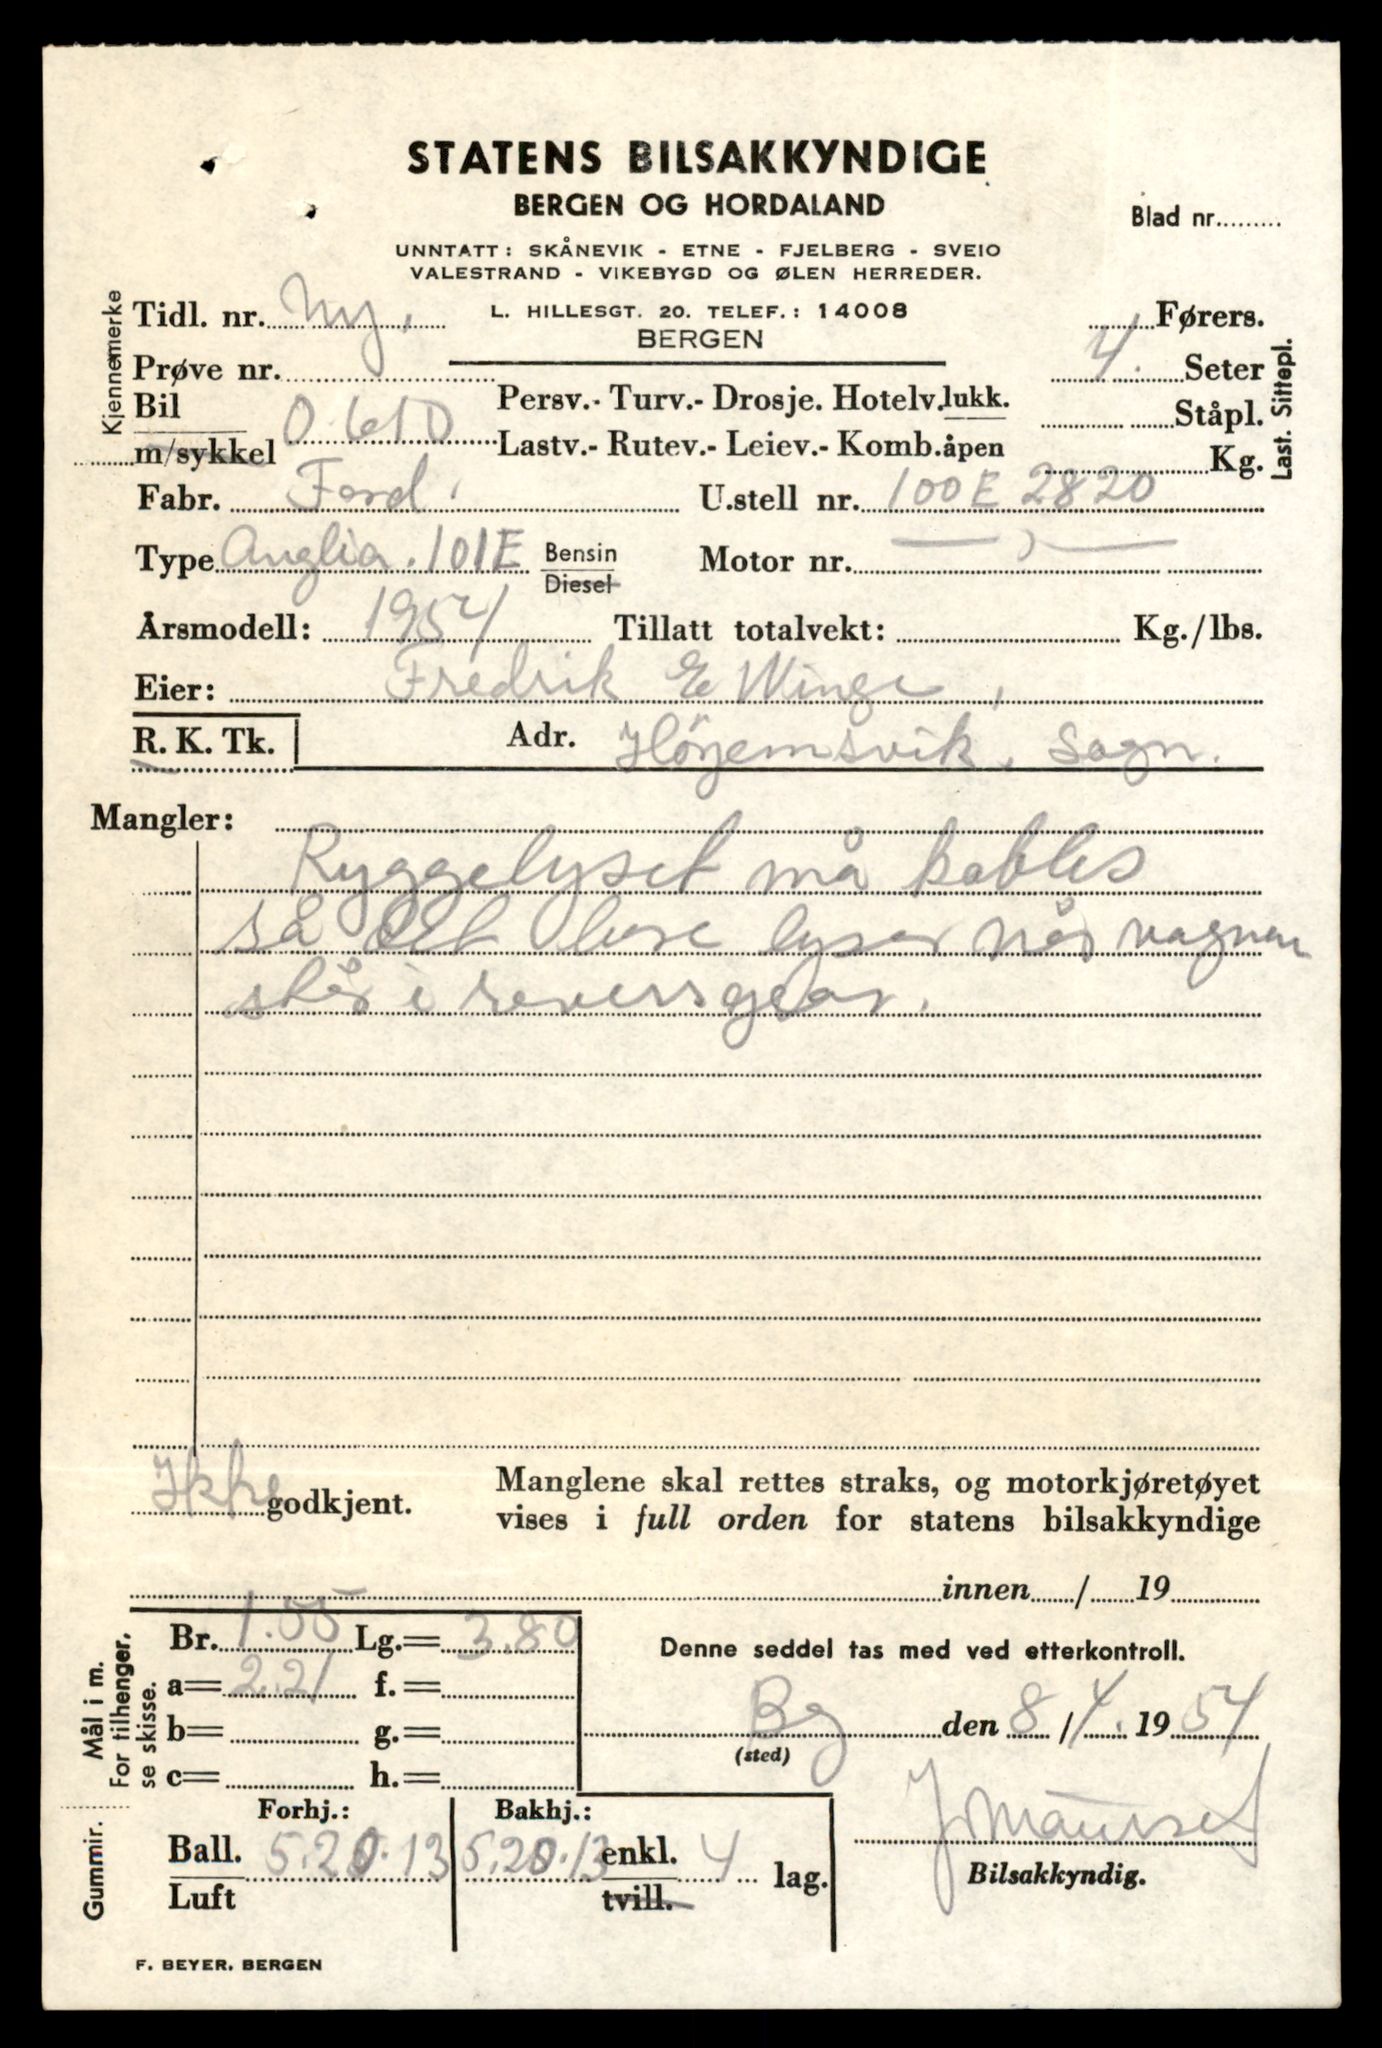 STATENS BILSAKKYNDIGE
BERGEN OG HORDALAND
Blad nr.........
UNNTATT: SKÅNEVIK - ETNE - FJELBERG - SVEIO
VALESTRAND - VIKEBYGD OG ØLEN HERREDER.
L. HILLESGT. 20. TELEF.: 14008
BERGEN
Kjennemerke
Tidl. nr. Ny.
Førers.
Prøve nr.
4. Seter
Last. Sittepl.
Bil
m/sykkel
O-610
Persv.- Turv.- Drosje. Hotelv. lukk.
Ståpl.
Lastv.- Rutev.- Leiev.- Komb. åpen
Kg.
Fabr. Ford.
U.stell nr. 100E 2820
Type Anglia. 101E Bensin
Diesel
Motor nr. — , —
Årsmodell: 1954
Tillatt totalvekt: Kg./lbs.
Eier: Fredrik E Winge,
R. K. Tk.
Adr. Höyemsvik, Sogn.
Mangler:
Ryggelyset må kobles
så det bare lyser når vagnen
står i reversgear.
Ikke godkjent.
Manglene skal rettes straks, og motorkjøretøyet
vises i full orden for statens bilsakkyndige
innen / 19
Mål i m.
For tilhenger,
se skisse.
Br. 1.55 Lg.= 3.80
a= 2.21 f.=
b= g.=
c= h.=
Denne seddel tas med ved etterkontroll.
Bg den 8/4. 1954
(sted)
Gummir.
Forhj.: Bakhj.:
Ball. 5.20.13 5.20.13 enkl. 4 lag.
Luft tvill.
Bilsakkyndig.
F. BEYER. BERGEN